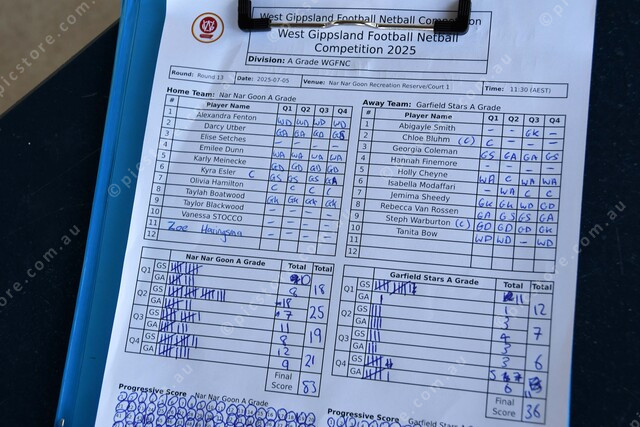 West Gippsland Football Netball Competition
West Gippsland Football Netball
Competition 2025
Division: A Grade WGFNC
Round: Round 13 Date: 2025-07-05 Venue: Nar Nar Goon Recreation Reserve/Court 1 Time: 11:30 (AEST)
Home Team: Nar Nar Goon A Grade
# Player Name Q1 Q2 Q3 Q4
1 Alexandra Fenton WD WD WD WD
2 Darcy Utber GA GA GD GS
3 Elise Setches - - - -
4 Emilee Dunn WA WA WA WA
5 Karly Meinecke GD GD GD GD
6 Kyra Esler C GS GS GS GA
7 Olivia Hamilton C C C C
8 Taylah Boatwood GK GK GK GK
9 Taylor Blackwood - - - -
10 Vanessa STOCCO - - - -
11 Zoe
12
Away Team: Garfield Stars A Grade
# Player Name Q1 Q2 Q3 Q4
1 Abigayle Smith - - GK -
2 Chloe Bluhm (C) - - - -
3 Georgia Coleman GS GA GA GS
4 Hannah Finemore - - - -
5 Holly Cheyne - - - -
6 Isabella Modaffari WA C WA WA
7 Jemima Sheedy - WA C C
8 Rebecca Van Rossen GK GK WD GK
9 Steph Warburton (C) GA GS GS GA
10 Tanita Bow GD GD GD GD
11 WD WD - WD
12
Nar Nar Goon A Grade Total Total
Q1 GS 10
GA 8 18
Q2 GS 18
GA 7 25
Q3 GS 11
GA 8 19
Q4 GS 12
GA 9 21
Final
Score 83
Garfield Stars A Grade Total Total
Q1 GS 11
GA 1 12
Q2 GS
GA 7
Q3 GS 3
GA 3 6
Q4 GS
GA 6
Final
Score 36
Progressive Score Nar Nar Goon A Grade
Progressive Score Garfield Stars A Grade